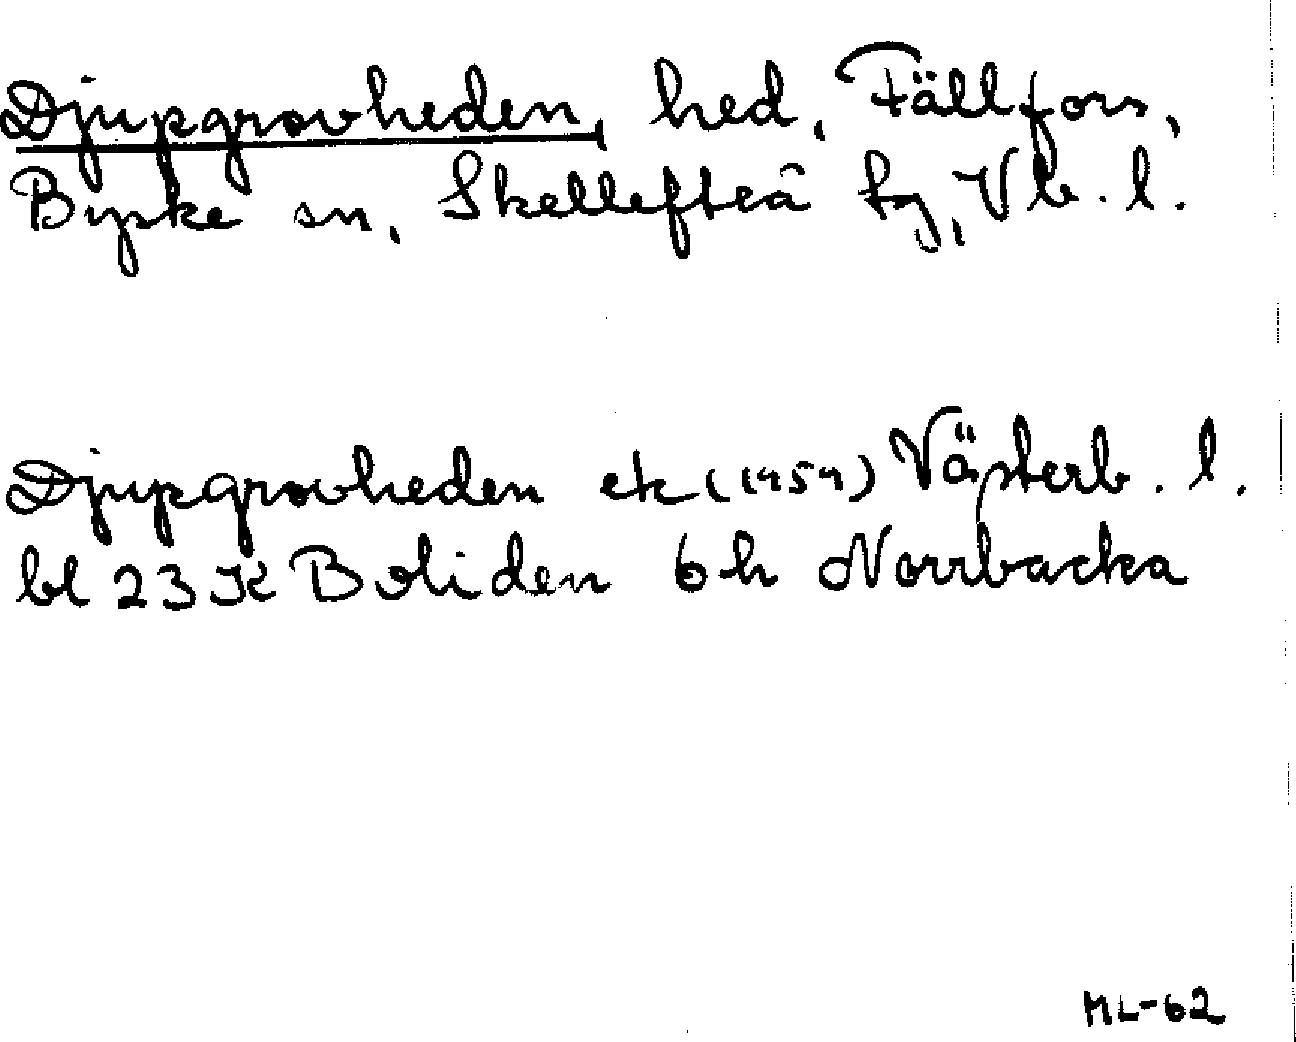 Djupgrovheden, hed, Fällfors,
Byske sn, Skellefteå tg, Vb. l.
Djupgrovheden ek (1959) Västerb. l.
bl 23 K Boliden 6 h Norrbacka
ML-62